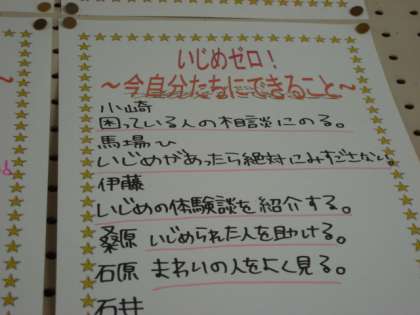 いじめゼロ!
～今自分たちにできること～
小崎
困っている人の相談にのる。
馬場ひ
いじめがあったら絶対にみすごさない。
伊藤
いじめの体験談を紹介する。
桑原 いじめられた人を助ける。
石原 まわいの人をよく見る。
石井